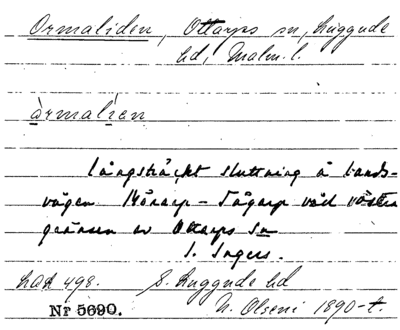 Ormaliden, Ottarps sn, Luggude
hd, Malm. l.
òrmalien
långsträckt sluttning å lands-
vägen Mörarp - Tågarp vid västra
gränsen av Ottarps sn
I. Ingers.
Lad 498. S. Luggude hd
Nr 5690. N. Olséni 1890-t.